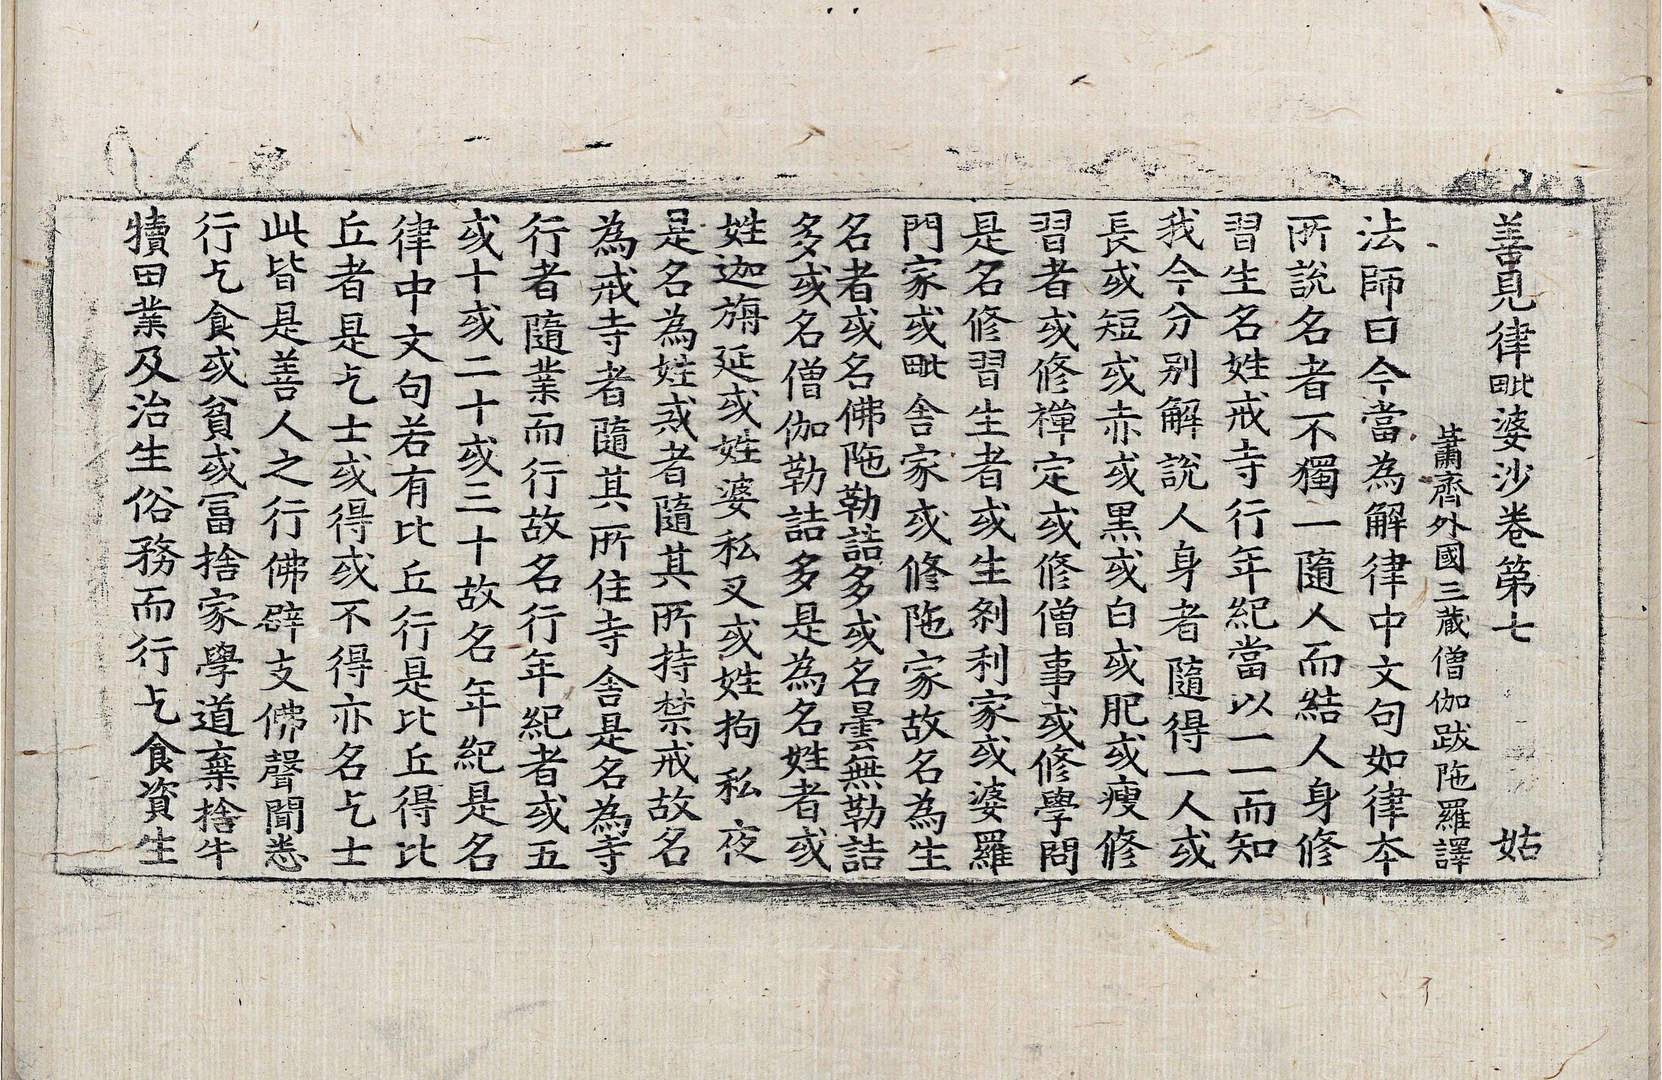 善見律毗婆沙卷第七　姑
蕭齊外國三藏僧伽跋陁羅譯
法師曰今當為解律中文句如律夲
所說名者不獨一隨人而結人身修
習生名姓戒寺行年紀當以一一而知
我今分別解說人身者隨得一人或
長或短或赤或黒或白或肥或瘦修
習者或修禪定或修僧事或修學問
是名修習生者或生剎利家或婆羅
門家或毗舍家或修陁家故名為生
名者或名佛陁勒詰多或名曇無勒詰
多或名僧伽勒詰多是為名姓者或
姓迦旃延或姓婆私叉或姓拘私夜
是名為姓戒者隨其所持禁戒故名
為戒寺者隨其所住寺舍是名為寺
行者隨業而行故名行年紀者或五
或十或二十或三十故名年紀是名
律中文句若有比丘行是比丘得比
丘者是乞士或得或不得亦名乞士
此皆是善人之行佛辟支佛聲聞悉
行乞食或貧或冨捨家學道棄捨牛
犢田業及治生俗務而行乞食資生